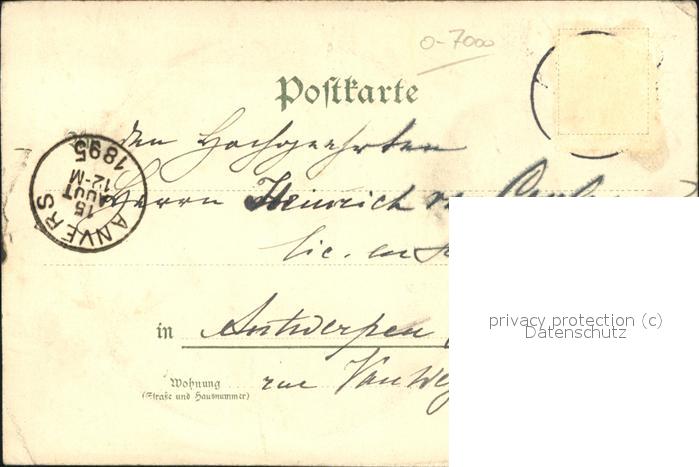 0-7000
Postkarte
den Hochgeehrten
Herrn Heinrich
lic. en
in Antwerpen
Wohnung
(Straße und Hausnummer)
rue Van
ANVERS
15
AOUT
12-M
1895
privacy protection (c)
Datenschutz